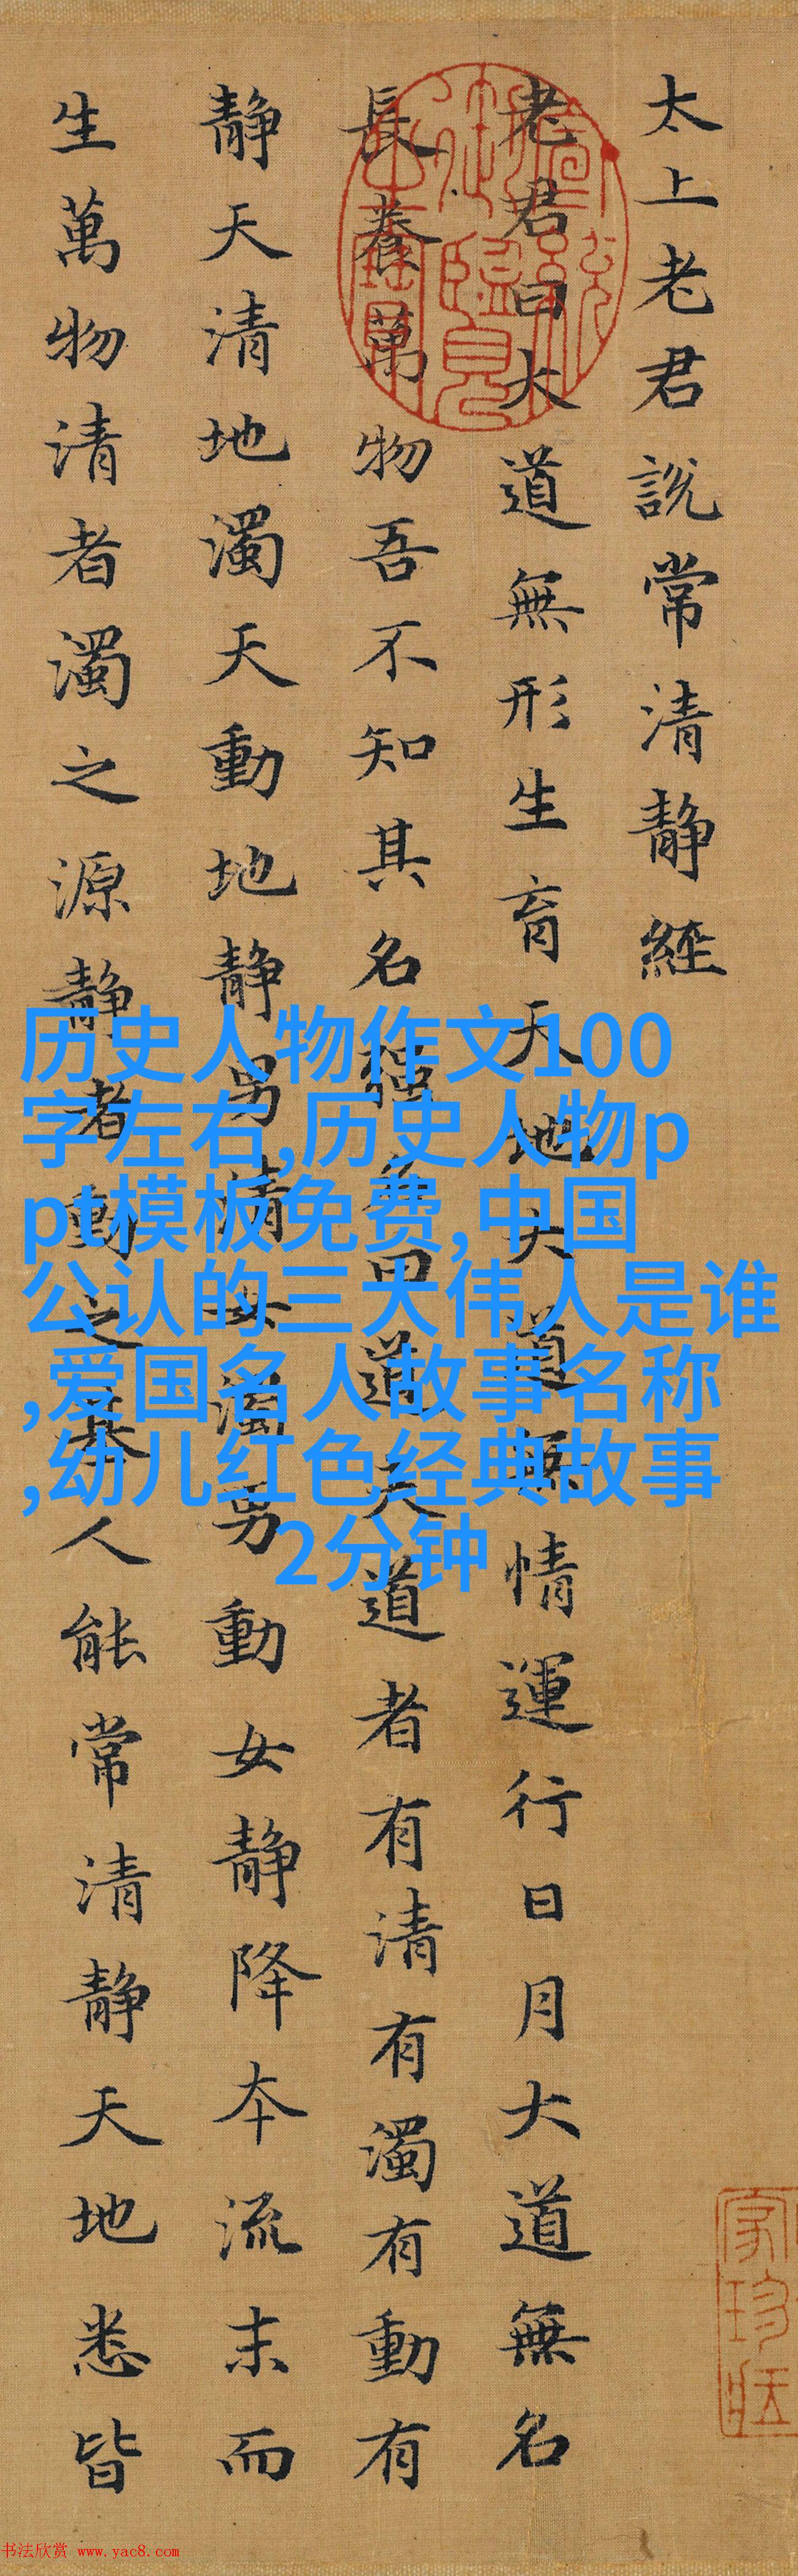 太上老君說常清靜經
老君曰大道無形生育天地大道無情運行日月大道無名
長養萬物吾不知其名強名曰道夫道者有清有濁有動有
靜天清地濁天動地靜男清女濁男動女靜降本流末而
生萬物清者濁之源靜者動之基人能常清靜天地悉皆
历史人物作文100
字左右,历史人物p
pt模板免费,中国
公认的三大伟人是谁
,爱国名人故事名称
,幼儿红色经典故事
2分钟
书法欣赏 www.yac8.com